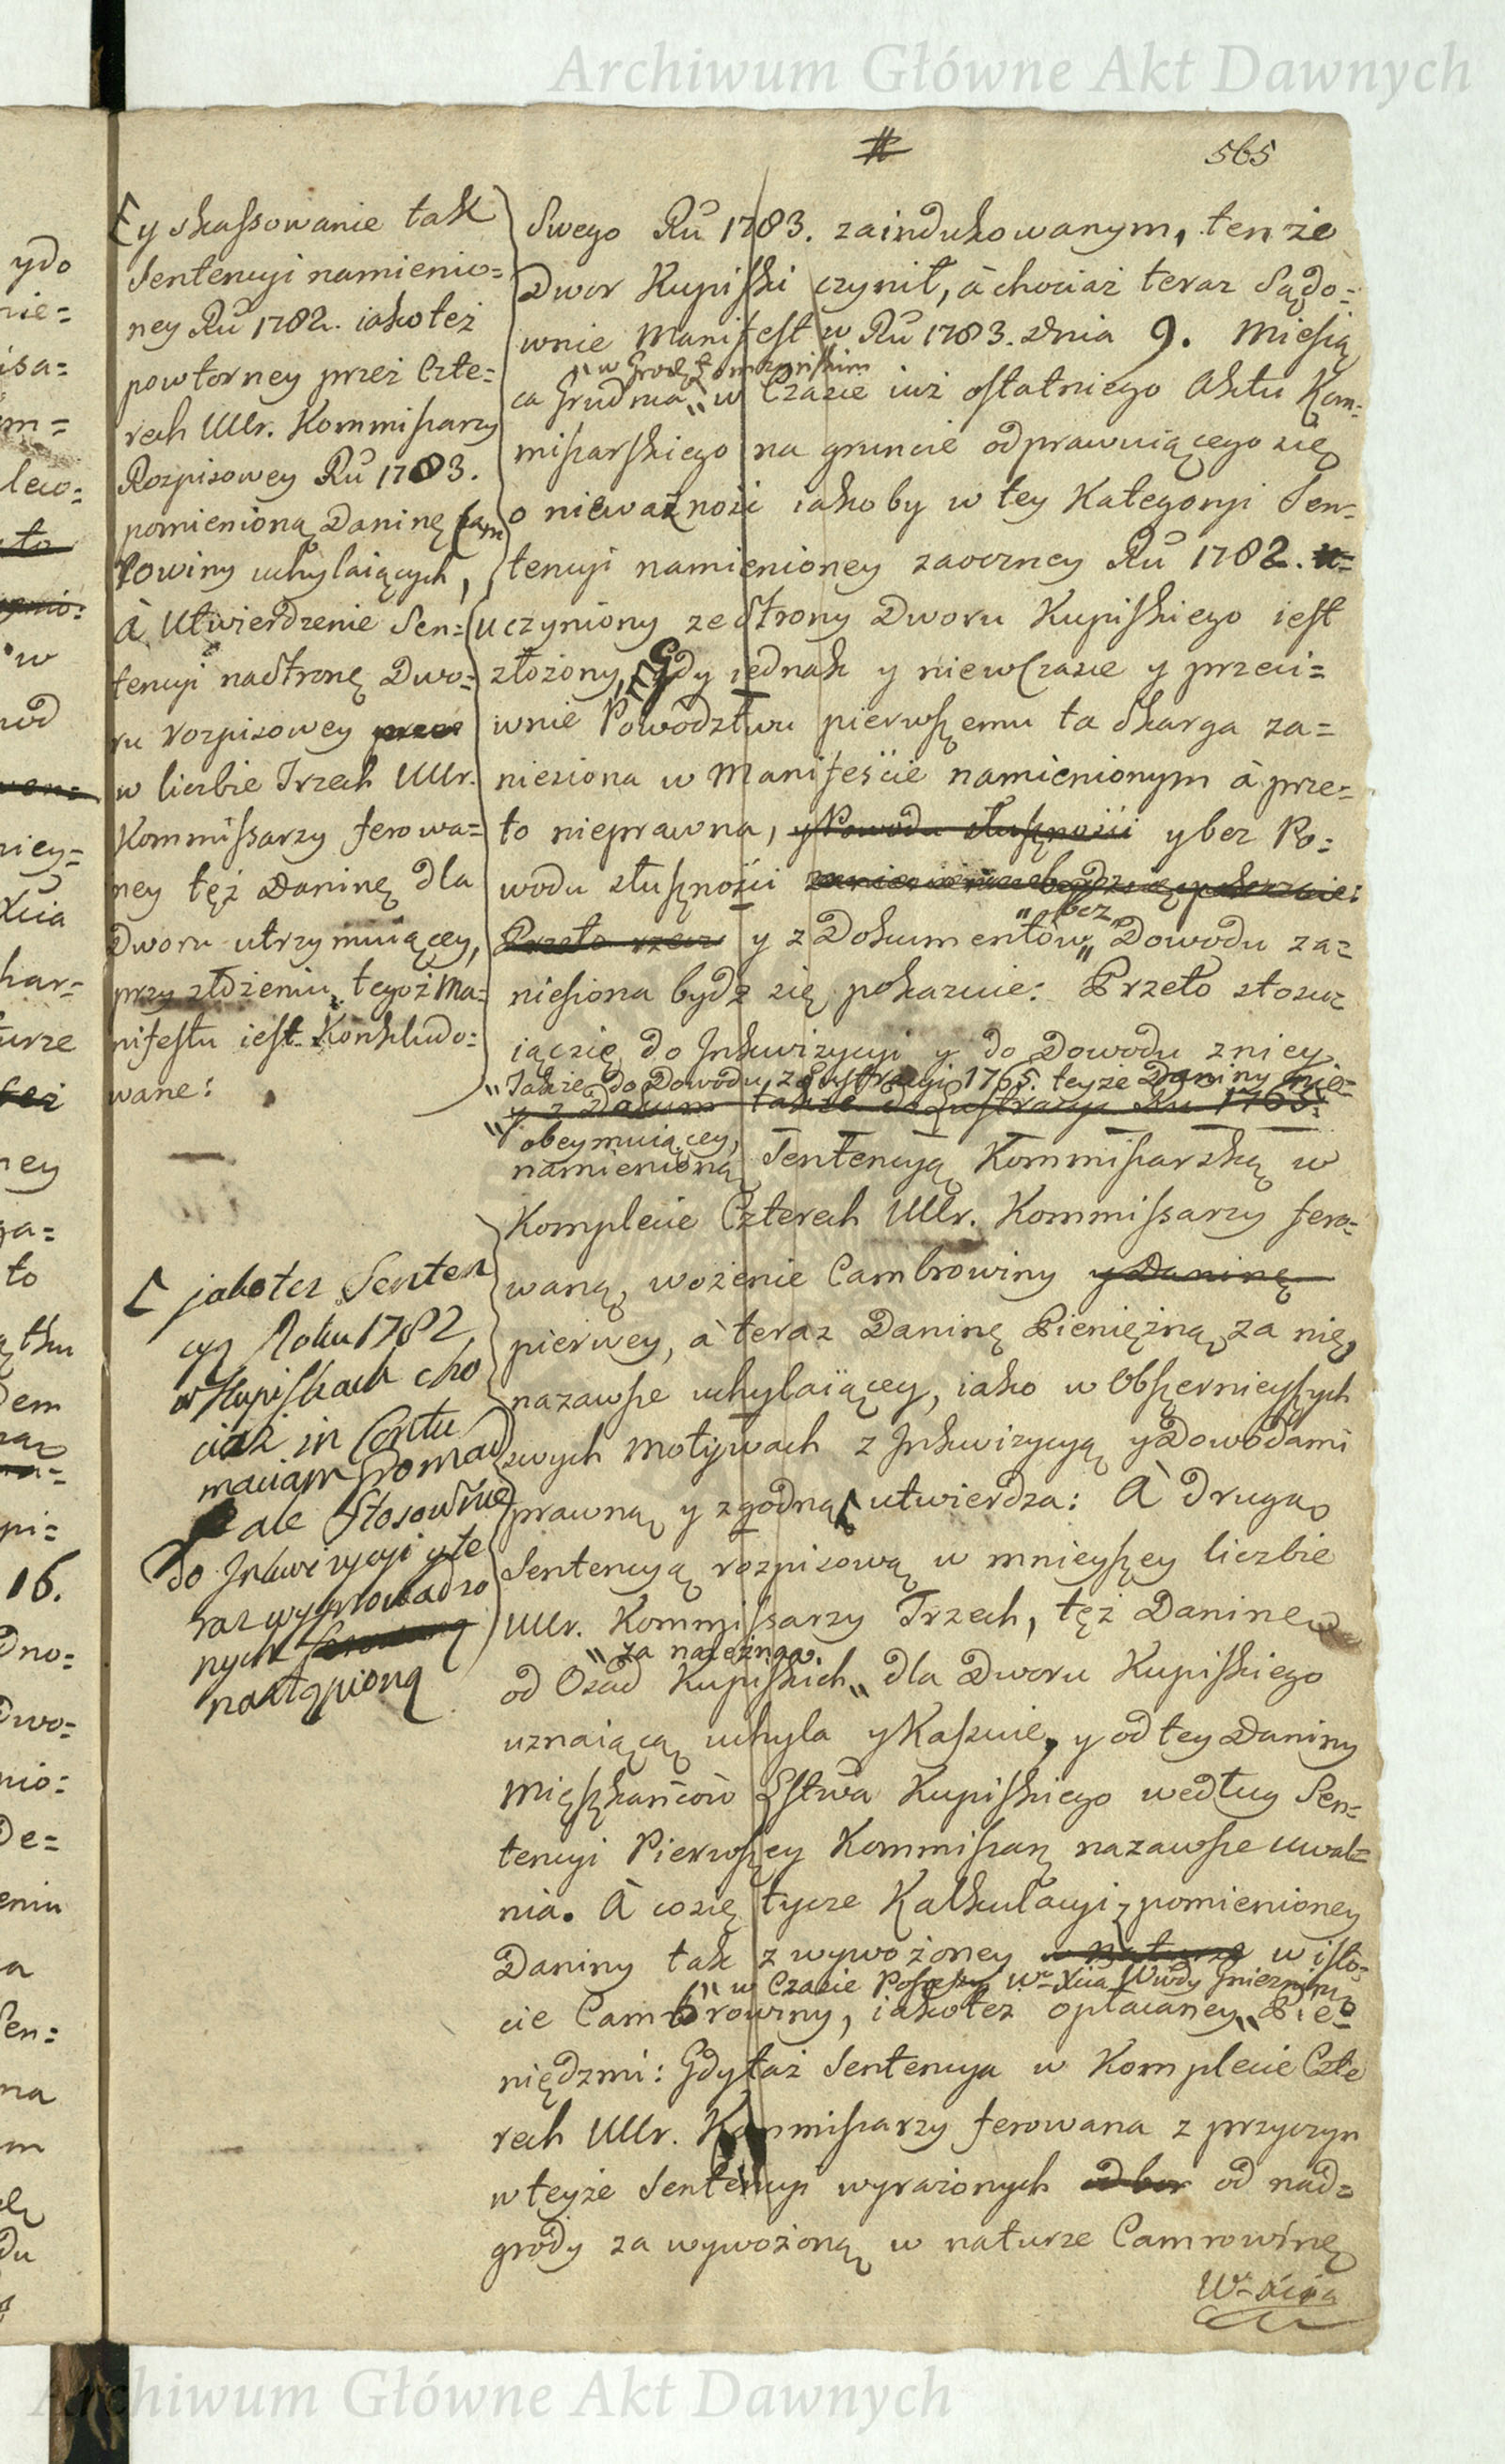 Archiwum Główne Akt Dawnych
565
[y skassowanie tak
Sentencyi namienio=
ney Ru 1782. iakoteż
powtorney przez Czte=
rech Ullr. Kommissarzy
Rozpisowey Ru 1783.
pomienioną Daninę Cam
rowiny uchylaiących,
à Utwierdzenie Sen=
tencyi nastronę Dwo=
ru rozpisowey
w liczbie Trzech Ullr.
Kommissarzy ferowa=
ney tęż Daninę dla
Dworu utrzymuiącey,
przy złożeniu tegoż Ma=
nifestu iest Konkludo=
wane:
[ jakotez Senten
cyą Roku 1782
w Kupiskach cho
ciaż in Contu
maciam Gromad
ale stosownie
do Inkwizycyi y te
raz wyprowadzo
nych
nastąpioną
Swego Ru 1783. zaindukowanym, tenże
Dwor Kupiski czynił, à chociaż teraz Sądo=
wnie Manifest w Ru 1783. dnia 9. Miesią
"w Grodz. Łomzynskim
ca Grudnia" w Czasie iuż ostatniego Aktu Kom=
missarskiego na gruncie odprawuiącego się
o nieważnośi iakoby w tey Kategoryi Sen=
tencyi namienioney zaoczney Ru 1782.
uczyniony ze strony Dworu Kupiskiego iest
złożony, Gdy iednak y niewczasie y przeci=
wnie Powodztwu pierwszemu ta skarga za=
niesiona w Manifeście namienionym à prze=
to nieprawna, y Powodu słusznośii y bez Po=
wodu słusznośii
"bez
Przeto rzecz y z Dokumentów" Dowodu za=
niesiona bydz się pokazuie: Przeto stosu
iącsię do Inkwizycyi y do Dowodu zniey
"Takze do Dowodu z Lustracyi 1765. teyże Daniny nie=
y z Dokum takze do Lustracyi Ru 1765.
"obeymuiącey,
namienioną Sentencyą Kommissarską w
Komplecie Czterech Ullr. Kommissarzy fero=
waną, wożenie Cambrowiny y Daninę
pierwey, à teraz Daninę Pieniężną za nię,
nazawsze uchylaiącey, iako w Obszernieyszych
swych Motywach z Inkwizycyą y Dowodami
prawną y zgodną [ utwierdza: À drugą
Sentencyą rozpisową w mnieyszey liczbie
Ullr. Kommissarzy Trzech, tęż Daninę
"za należną
od Osad Kupiskich" dla Dworu Kupiskiego
uznaiącą uchyla y Kassuie, y od tey Daniny
Mieszkańców Łstwa Kupiskiego według Sen=
tencyi Pierwszey Kommissarz nazawsze uwal=
nia. À cosię tycze Kalkulacyi pomienioney
Daniny tak z wywożoney w naturze w isto=
"w Czasie Possessyi Wo Xcia Wwdy Gnieznin
cie Cambrowiny, iakotez opłacaney" Pie=
niędzmi: Gdyłaż Sentencya w Komplecie Czte
rech Ullr. Kommissarzy ferowana z przyczyn
wteyże Sentencyi wyrażonych od nad=
grody za wywożoną w naturze Camrowinę
Wo Xcia
Archiwum Główne Akt Dawnych